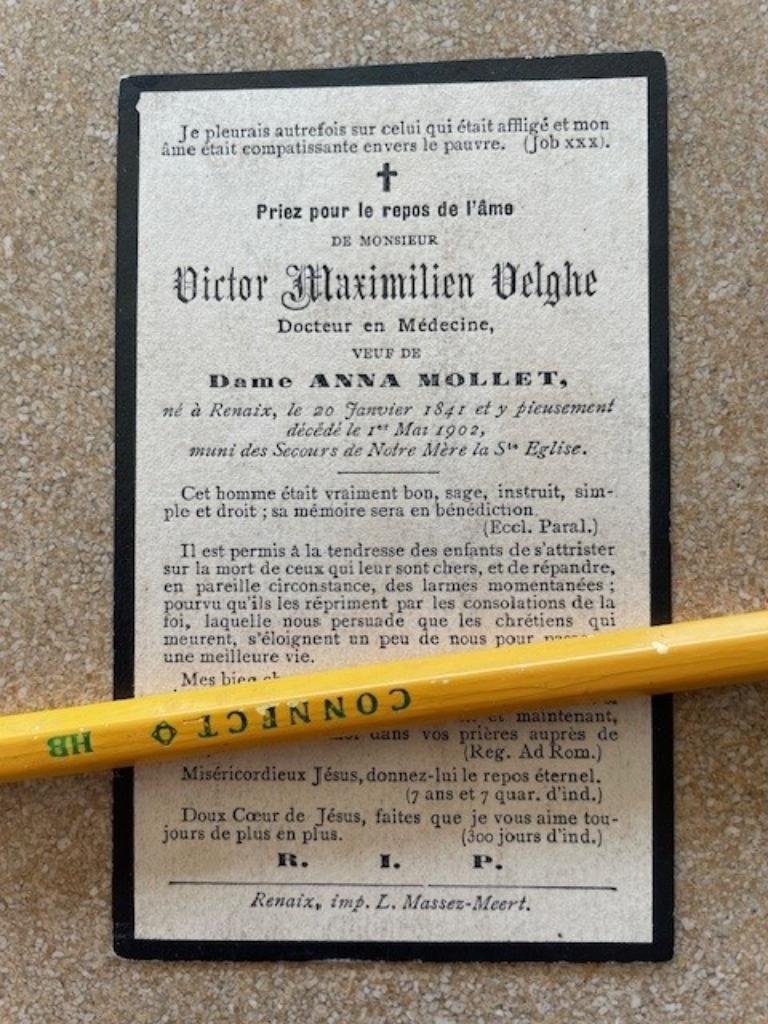 Je pleurais autrefois sur celui qui était affligé et mon
âme était compatissante envers le pauvre. (Job xxx).
Priez pour le repos de l'âme
DE MONSIEUR
Victor Maximilien Velghe
Docteur en Médecine,
VEUF DE
Dame ANNA MOLLET,
né à Renaix, le 20 Janvier 1841 et y pieusement
décédé le 1er Mai 1902,
muni des Secours de Notre Mère la Ste Eglise.
Cet homme était vraiment bon, sage, instruit, sim-
ple et droit ; sa mémoire sera en bénédiction
(Eccl. Paral.)
Il est permis à la tendresse des enfants de s'attrister
sur la mort de ceux qui leur sont chers, et de répandre,
en pareille circonstance, des larmes momentanées ;
pourvu qu'ils les répriment par les consolations de la
foi, laquelle nous persuade que les chrétiens qui
meurent, s'éloignent un peu de nous pour
une meilleure vie.
Mes
CONNECT HB
et maintenant,
dans vos prières auprès de
(Reg. Ad Rom.)
Miséricordieux Jésus, donnez-lui le repos éternel.
(7 ans et 7 quar. d'ind.)
Doux Cœur de Jésus, faites que je vous aime tou-
jours de plus en plus. (300 jours d'ind.)
R. I. P.
Renaix, imp. L. Massez-Meert.